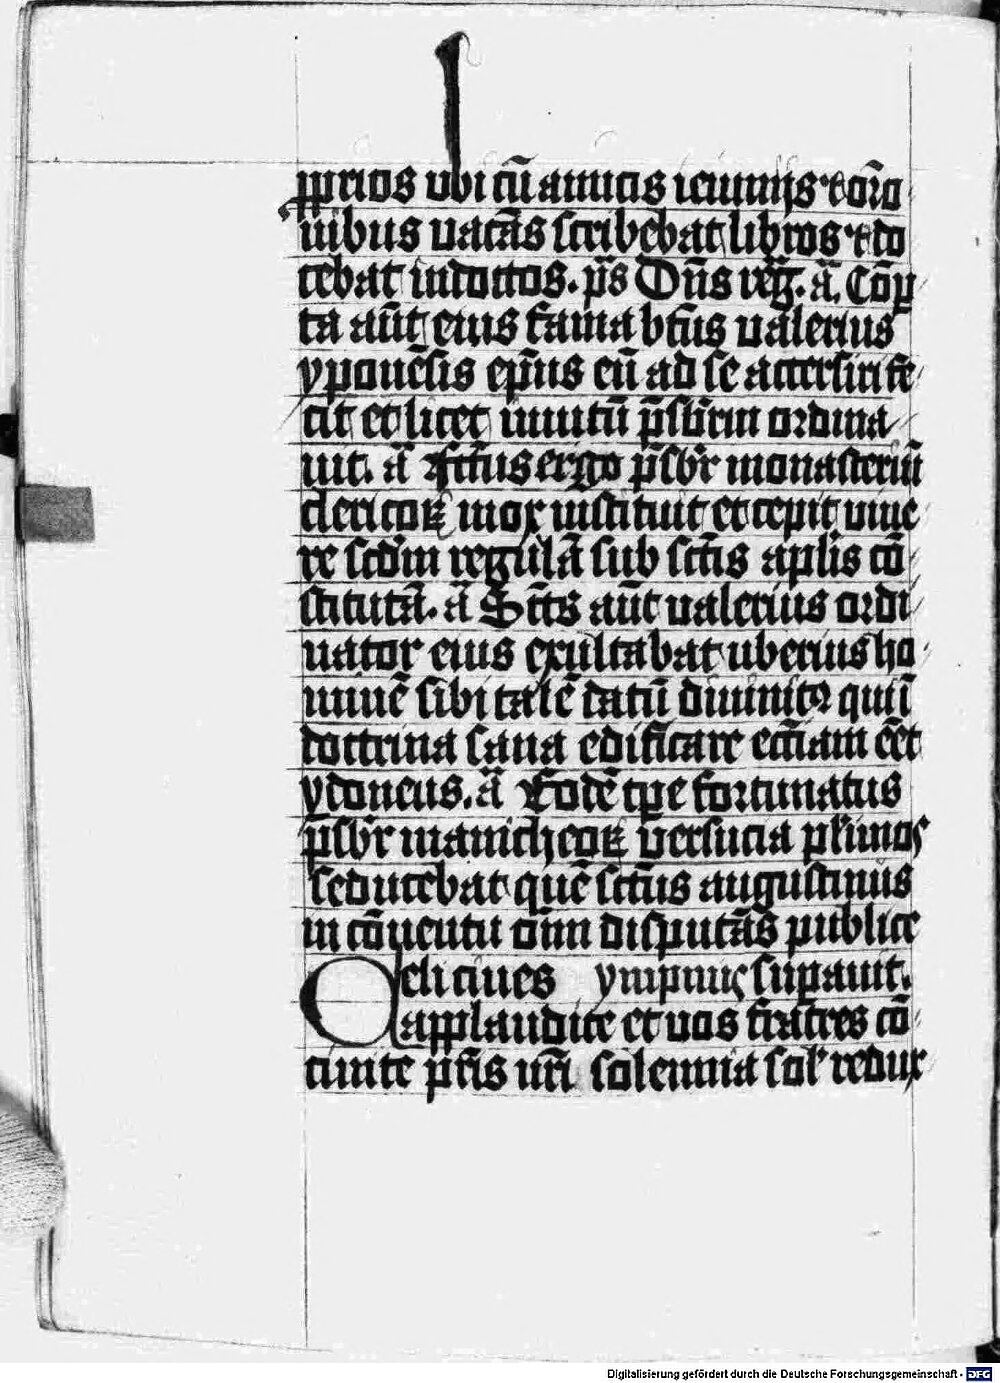 ꝓprios ubi cū amicis ieiunijs ⁊ or̄o
nibus vacās scribebat libros ⁊ do
cebat indoctos. p̄s Dn̄s reḡ. a͞. Cōp
ta aūt eius fama bt̄us valerius
yponēsis ep̄us eū ad se accersiri fe
cit et licet inuitū p̄sbr̄m ordina
uit. a͞ Fc̄us ergo p̄sbr̄ monasteriū
clericoꝝ mox instituit et cepit viue
re scd̄m regulā sub sc̄is aplis cō
stitutā. a͞ Sc̄s aūt valerius ordi
nator eius exultabat uberius ho
minē sibi talē datū diuinitꝰ qui
doctrina sana edificare ecc̄iam eēt
ydoneus. a͞ Eodē tp̄e fortunatus
p̄sbr̄ manicheoꝝ versucia pl̄imos
seducebat quē sc̄us augustinus
in cōuentu om̄i disputās publice
Celi ciues ympnꝰ supauit.
applaudite et vos fratres cō
cinite pr̄is nr̄i solennia sol̄ redux
Digitalisierung gefördert durch die Deutsche Forschungsgemeinschaft - DFG